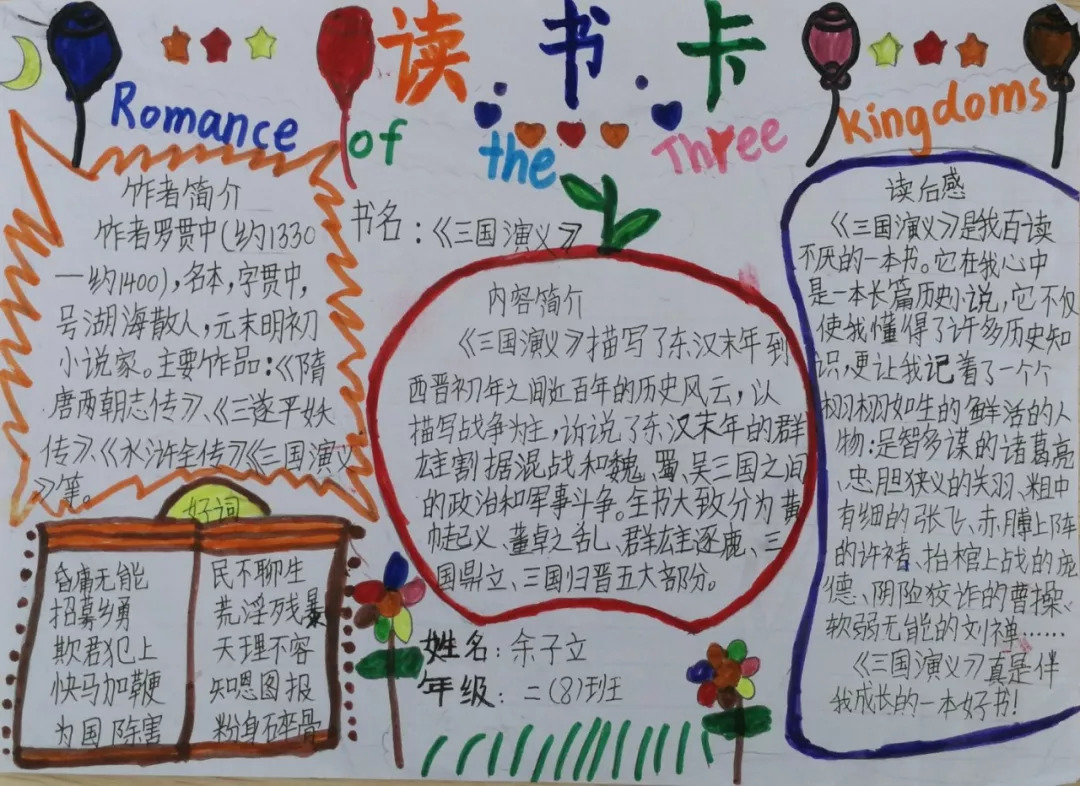 读书卡
Romance of the Three Kingdoms
作者简介
作者罗贯中(约1330
—约1400),名本,字贯中,
号湖海散人,元末明初
小说家。主要作品:《隋
唐两朝志传》、《三遂平妖
传》、《水浒全传》《三国演义
》等。
书名:《三国演义》
内容简介
《三国演义》描写了东汉末年到
西晋初年之间近百年的历史风云,以
描写战争为主,诉说了东汉末年的群
雄割据混战和魏、蜀、吴三国之间
的政治和军事斗争。全书大致分为黄
巾起义、董卓之乱、群雄逐鹿、三
国鼎立、三国归晋五大部分。
好词
昏庸无能
招募乡勇
欺君犯上
快马加鞭
为国除害
民不聊生
荒淫残暴
天理不容
知恩图报
粉身碎骨
姓名:余子立
年级:二(8)班
读后感
《三国演义》是我百读
不厌的一本书。它在我心中
是一本长篇历史小说,它不仅
使我懂得了许多历史知
识,更让我记着了一个个
栩栩如生的鲜活的人
物:足智多谋的诸葛亮
、忠胆狭义的关羽、粗中
有细的张飞、赤膊上阵
的许褚、抬棺上战的庞
德、阴险狡诈的曹操、
软弱无能的刘禅……
《三国演义》真是伴
我成长的一本好书!